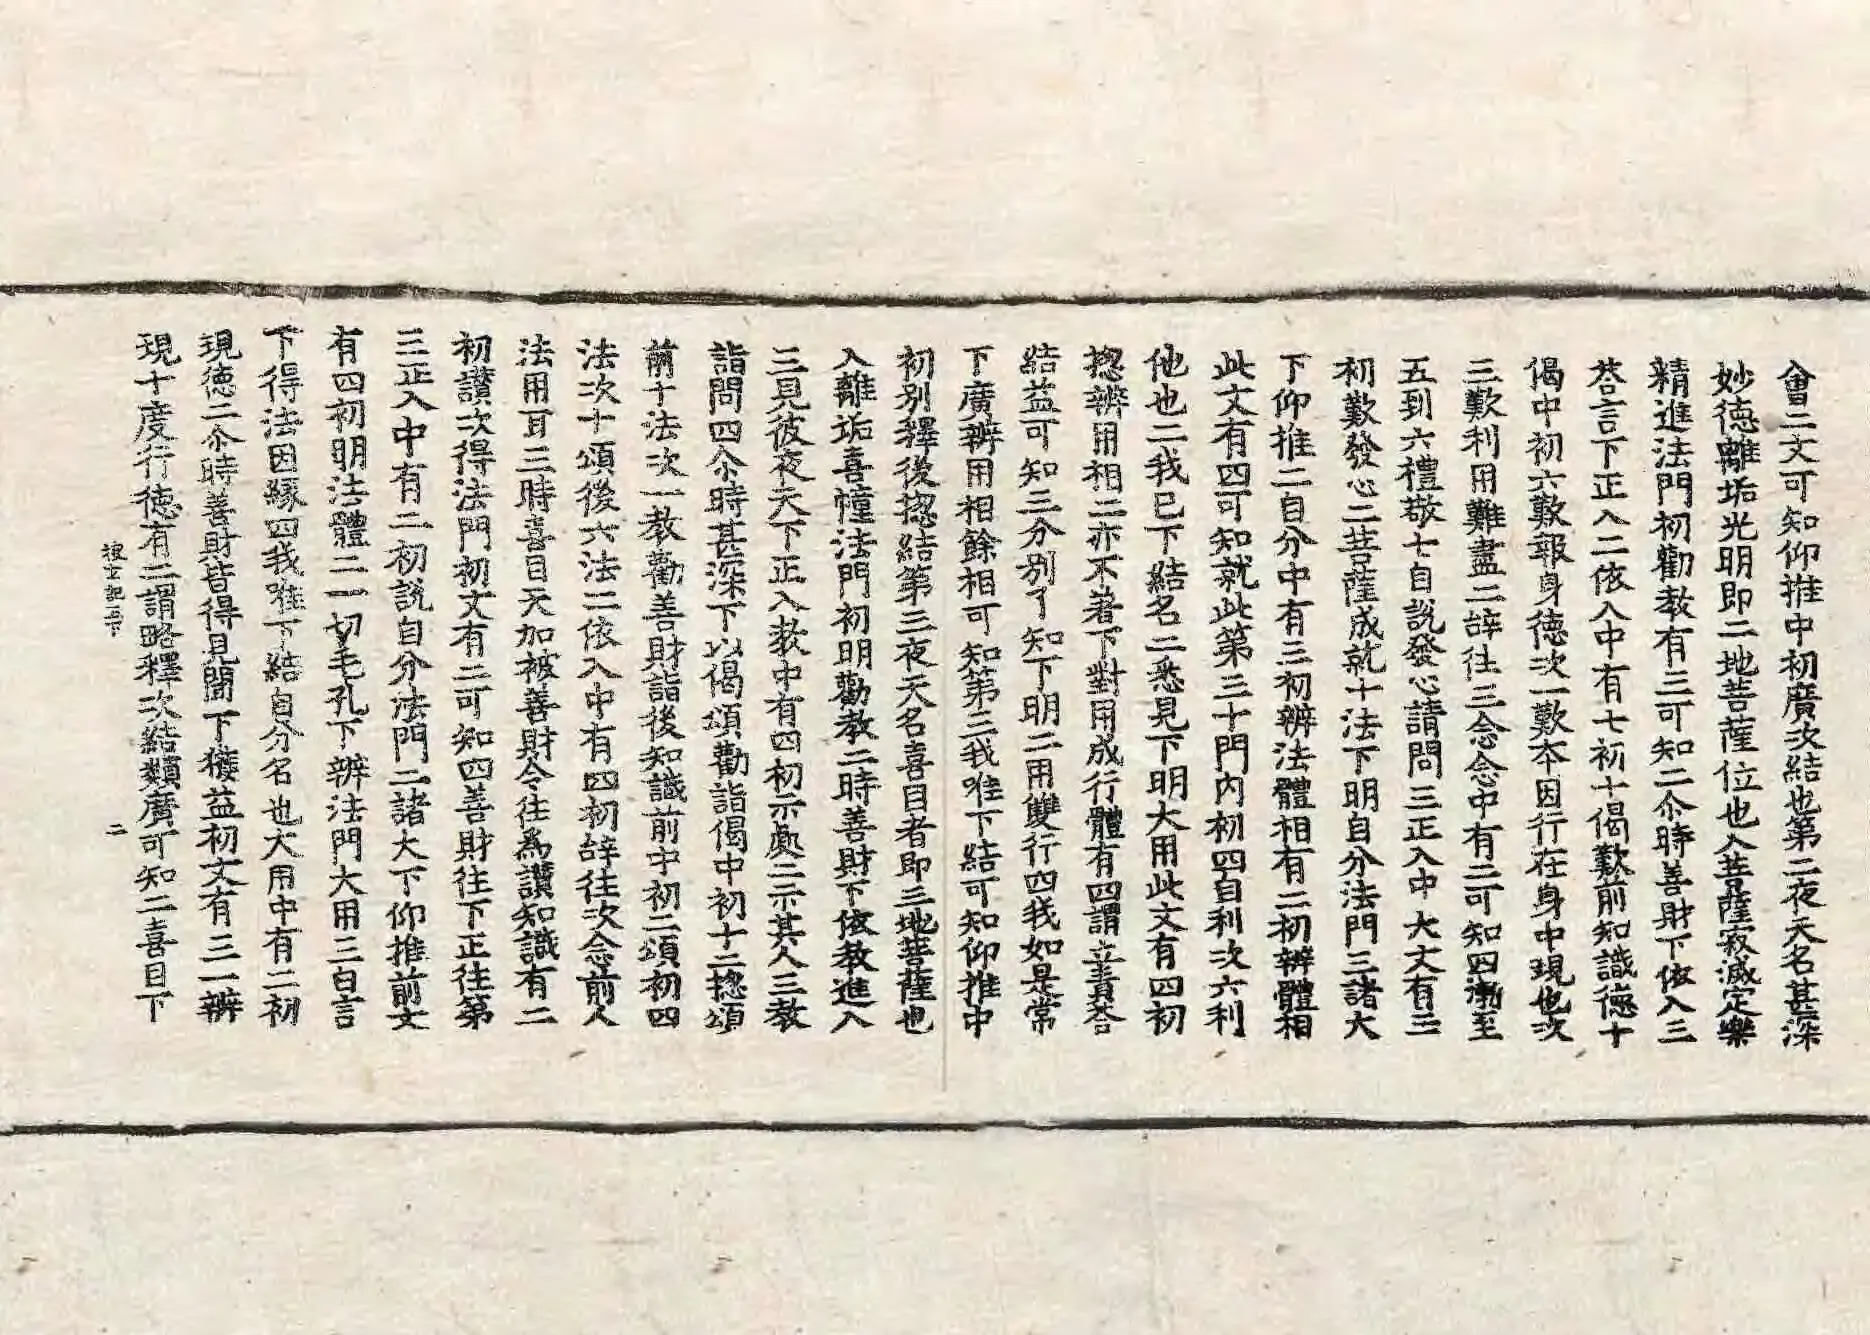 會二文可知仰推中初廣次結也第二夜天名甚深
妙德離垢光明即二地菩薩位也入菩薩寂滅定樂
精進法門初勸教有三可知二尒時善財下依入三
荅言下正入二依入中有七初十偈歎前知識德十
偈中初六歎報身德次一歎本因行在身中現也次
三歎利用難盡二辝往三念念中有二可知四漸至
五到六禮敬七自說發心請問三正入中大文有三
初歎發心二菩薩成就十法下明自分法門三諸大
下仰推二自分中有三初辨法體相有二初辨體相
此文有四可知就此第三十門內初四自利次六利
他也二我已下結名二悉見下明大用此文有四初
揔辨用相二亦不著下對用成行體有四謂立責荅
結益可知三分別了知下明二用雙行四我如是常
下廣辨用相餘相可知第三我唯下結可知仰推中
初別釋後揔結第三夜天名喜目者即三地菩薩也
入離垢喜幢法門初明勸教二時善財下依教進入
三見彼夜天下正入教中有四初示處二示其人三教
詣問四尒時甚深下以偈頌勸詣偈中初十二揔頌
前十法次一教勸善財詣後知識前中初二頌初四
法次十頌後六法二依入中有四初辝往次念前人
法用耳三時喜目天加被善財令往為讚知識有二
初讚次得法門初文有二可知四善財往下正往第
三正入中有二初說自分法門二諸大下仰推前文
有四初明法體二一切毛孔下辨法門大用三白言
下得法因緣四我唯下結自分名也大用中有二初
現德二尒時善財皆得見聞下獲益初文有三一辨
現十度行德有二謂略釋次結類廣可知二喜目下
搜玄記五下 二